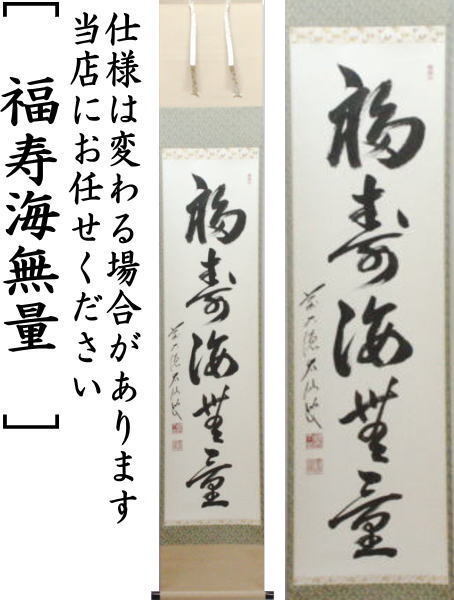 仕様は変わる場合があります
当店にお任せください
[福寿海無量]
福寿海無量
福寿海無量